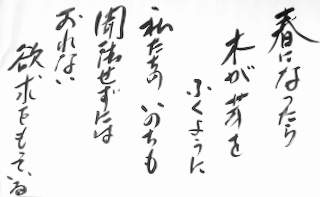 春になったら
木が芽を
ふくように
私たちの いのちも
開法せずには
おれない
欲求をもっている